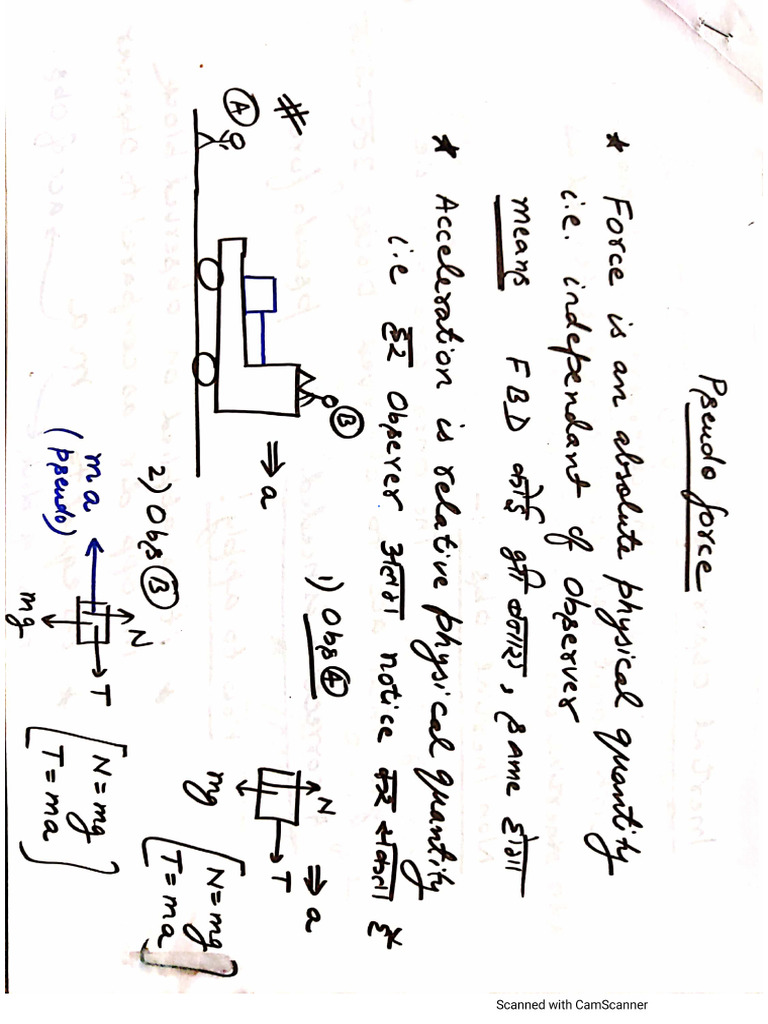 1
Pseudo force
* Force is an absolute physical quantity
i.e. independant of Observer
means FBD कोई भी बनाए, same होगा
* Acceleration is relative physical quantity
i.e हर Observer अलग notice कर सकता है
#
A
B
⇒ a
1) Obs A
N
T
mg
⇒ a
[N = mg
T = ma]
2) Obs B
N
T
mg
ma
(pseudo)
[N = mg
T = ma]
Scanned with CamScanner